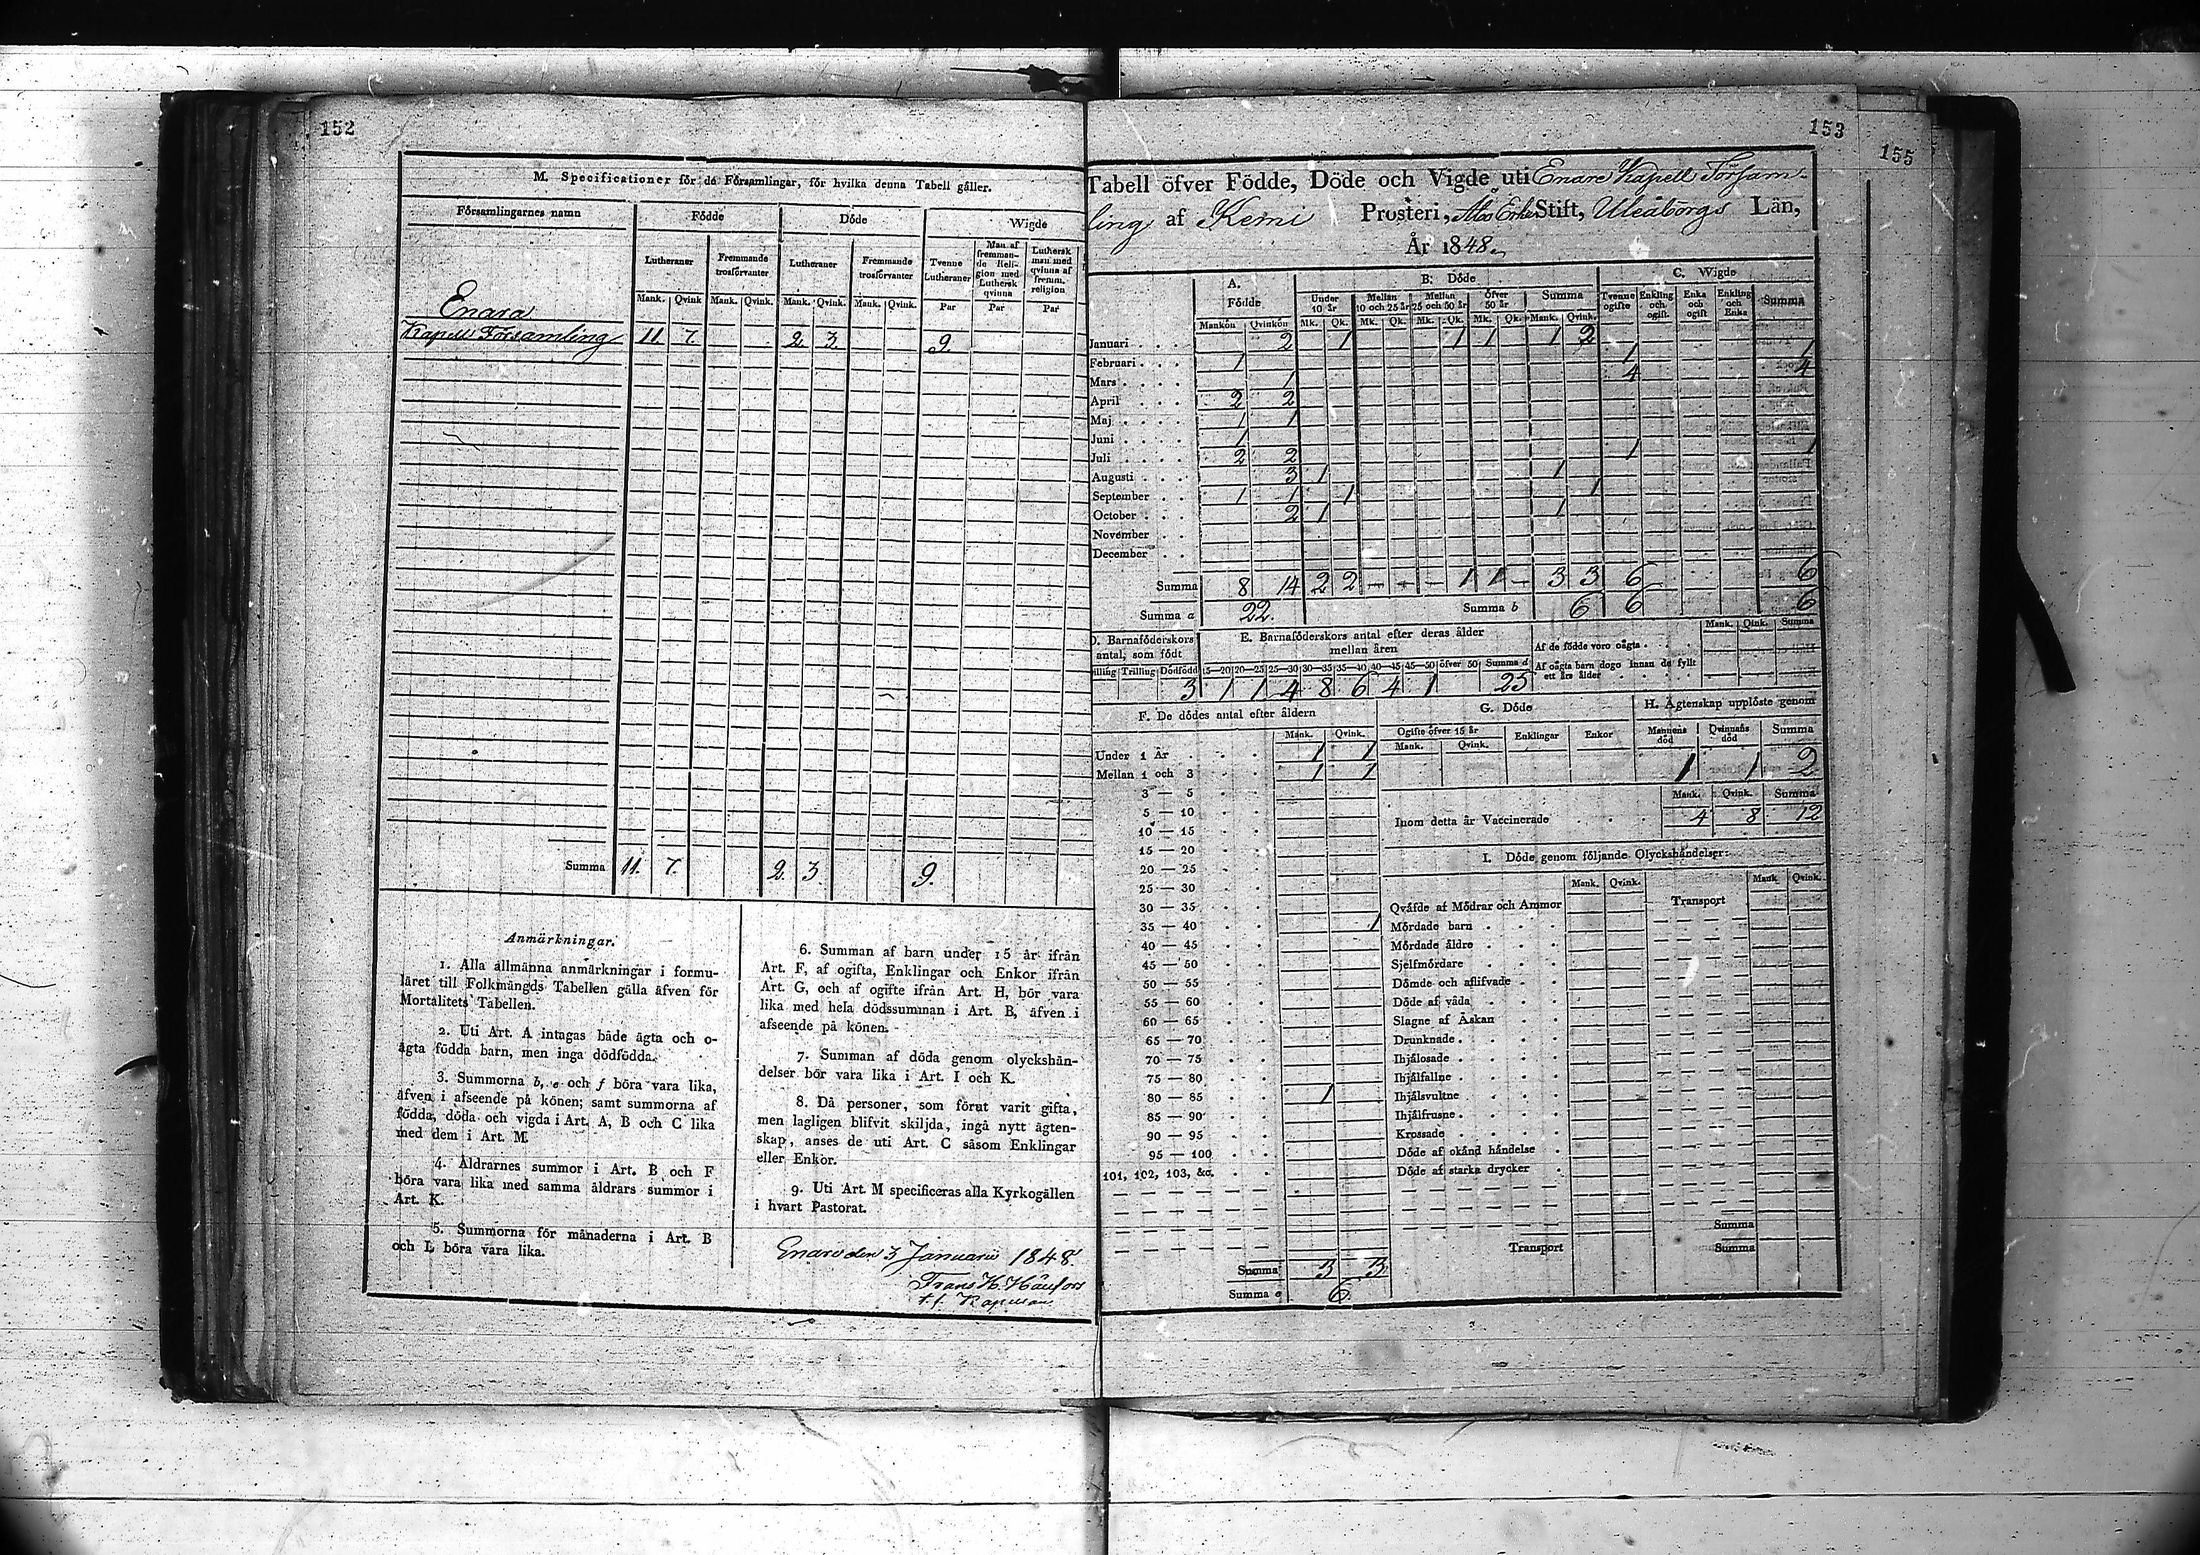 152
M. Specificationer för de Församlingar, för hvilka denna Tabell gäller.
Församlingarnes namn Födde Döde Wigde
Lutheraner Fremmande trosförvanter Lutheraner Fremmande trosförvanter Tvenne Lutheraner Man af fremmande Religion med Luthersk qvinna Luthersk man med qvinna af fremm. religion
Mank. Qvink Mank. Qvink. Mank. Qvink. Mank. Qvink. Par Par Par
Enara
Kapell Församling 11. 7. 2. 3. 9.
Summa 11. 7. 2. 3. 9.
Anmärkningar.
1. Alla allmänna anmärkningar i formu-
läret till Folkmängds Tabellen gälla äfven för
Mortalitets Tabellen.
2. Uti Art. A intagas både ägta och o-
ägta födda barn, men inga dödfödda.
3. Summorna b, e och f böra vara lika,
äfven i afseende på könen; samt summorna af
födda, döda och vigda i Art. A, B och C lika
med dem i Art. M.
4. Åldrarnes summor i Art. B och F
böra vara lika med samma åldrars summor i
Art. K.
5. Summorna för månaderna i Art. B
och L böra vara lika.
6. Summan af barn under 15 år ifrån
Art. F, af ogifta, Enklingar och Enkor ifrån
Art. G, och af ogifte ifrån Art. H, bör vara
lika med hela dödssumman i Art. B, äfven i
afseende på könen.
7. Summan af döda genom olyckshän-
delser bör vara lika i Art. I och K.
8. Då personer, som förut varit gifta,
men lagligen blifvit skiljda, ingå nytt ägten-
skap, anses de uti Art. C såsom Enklingar
eller Enkor.
9. Uti Art. M specificeras alla Kyrkogällen
i hvart Pastorat.
Enare den 3 Januarii 1848.
Frans H.
t.f. Kapellan
153
155
Tabell öfver Födde, Döde och Vigde uti Enare Kapell Försam-
ling af Kemi Prosteri, Åbo Erke Stift, Uleåborgs Län,
År 1848.
A. Födde B. Döde C. Wigde
Under 10 år Mellan 10 och 25 år Mellan 25 och 50 år öfver 50 år Summa Tvenne ogifte Enkling och ogift. Enka och ogift Enkling och Enka Summa
Mankön Qvinkön Mk. Qk. Mk. Qk. Mk. Qk. Mk. Qk. Mank. Qvink.
Januari 2 1 1 1 1 2
Februari 1 1 1
Mars 1 4 4
April 2 2
Maj 1 1
Juni 1
Juli 2 2 1 1
Augusti 3 1 1
September 1 1 1 1
October 2 1 1
November
December
Summa 8 14 2 2 - - - 1 1 - 3 3 6 6
Summa a 22. Summa b 6 6 6
D. Barnaföderskors antal, som född E. Barnaföderskors antal efter deras ålder mellan åren
Mank. Qink. Summa
Af de födde voro oägta
Af oägta barn dogo innan de fyllt ett års ålder
Trilling Dödfödd 15—20 20—25 25—30 30—35 35—40 40—45 45—50 öfver 50 Summa d
3 1 1 4 8 6 4 1 25
F. De dödes antal efter åldern
Mank. Qvink.
Under 1 År 1 1
Mellan 1 och 3 1 1
3 — 5
5 — 10
10 — 15
15 — 20
20 — 25
25 — 30
30 — 35
35 — 40 1
40 — 45
45 — 50
50 — 55
55 — 60
60 — 65
65 — 70
70 — 75
75 — 80
80 — 85 1
85 — 90
90 — 95
95 — 100
101, 102, 103, &c.
Summa 3 3.
Summa e 6.
G. Döde
Ogifte öfver 15 år Enklingar Enkor
Mank. Qvink.
H. Ägtenskap upplöste genom
Mannens död Qvinnans död Summa
1 1 2
Mank. Qvink. Summa
Inom detta år Vaccinerade 4 8 12
I. Döde genom följande Olyckshändelser:
Mank. Qvink. Mank. Qvink.
Qväfde af Mödrar och Ammor Transport
Mördade barn
Mördade äldre
Sjelfmördare
Dömde och aflifvade
Döde af våda
Slagne af Åskan
Drunknade
Ihjälosade
Ihjälfallne
Ihjälsvultne
Ihjälfrusne
Krossade
Döde af okänd händelse
Döde af starka drycker
Summa
Transport Summa